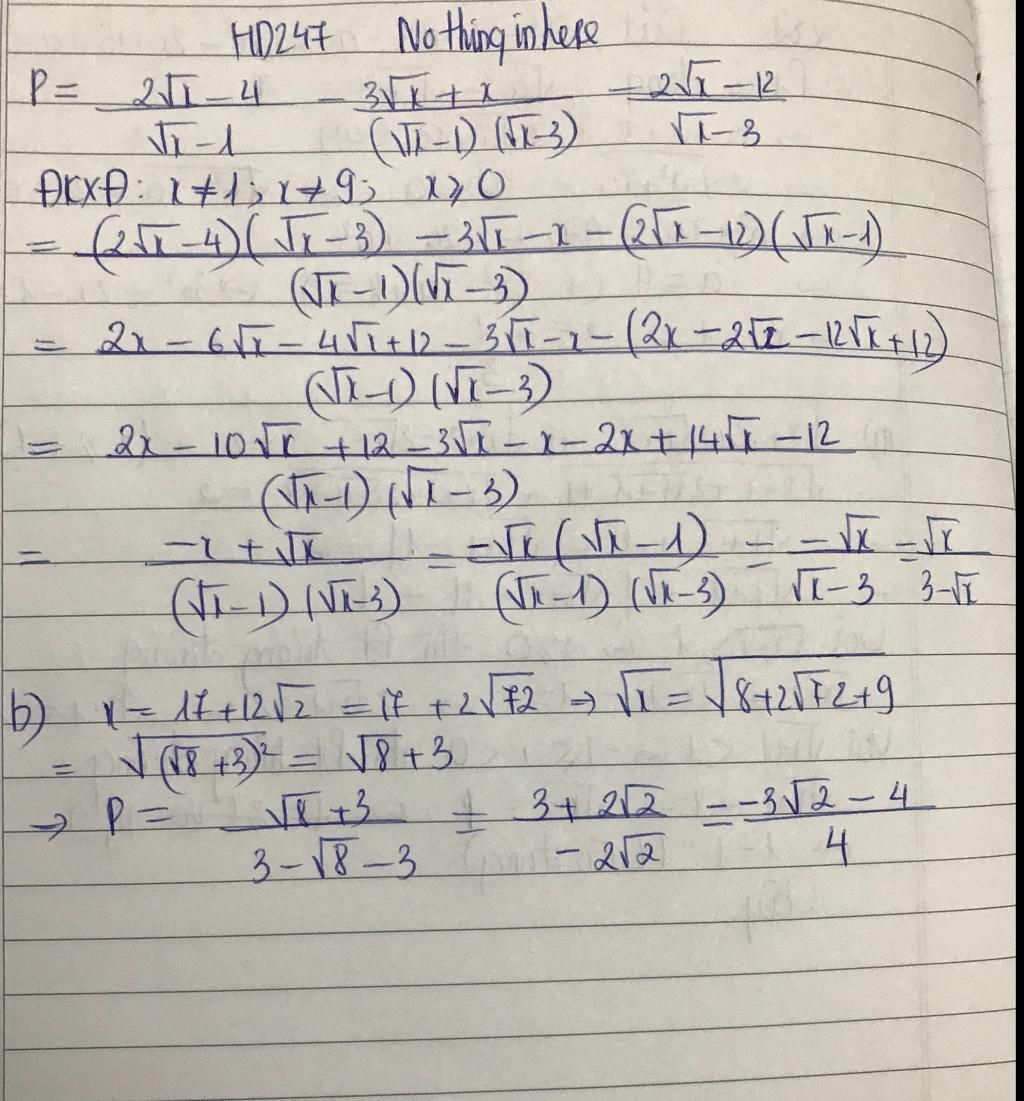 HD247 Nothing in here
P = (2√x - 4)/(√x - 1) - (3√x + x)/((√x - 1)(√x - 3)) - (2√x - 12)/(√x - 3)
ĐKXĐ: x ≠ 1; x ≠ 9; x ⩾ 0
= ((2√x - 4)(√x - 3) - 3√x - x - (2√x - 12)(√x - 1))/((√x - 1)(√x - 3))
= (2x - 6√x - 4√x + 12 - 3√x - x - (2x - 2√x - 12√x + 12))/((√x - 1)(√x - 3))
= (2x - 10√x + 12 - 3√x - x - 2x + 14√x - 12)/((√x - 1)(√x - 3))
= (-x + √x)/((√x - 1)(√x - 3)) = (-√x(√x - 1))/((√x - 1)(√x - 3)) = (-√x)/(√x - 3) = √x/(3 - √x)
b) x = 17 + 12√2 = 17 + 2√72 → √x = √(8 + 2√72 + 9)
= √((√8 + 3)²) = √8 + 3
→ P = (√8 + 3)/(3 - √8 - 3) = (3 + 2√2)/(-2√2) = (-3√2 - 4)/4